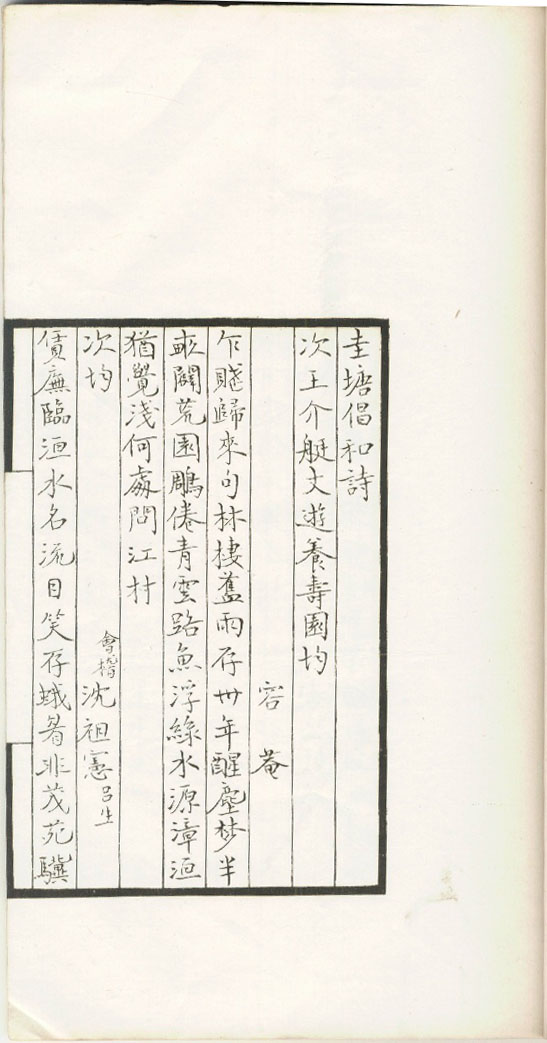 圭塘倡和詩
次王介艇丈遊養壽園均
容菴
乍賦歸來句林棲舊雨存卅年醒塵梦半
畝闢荒園雕倦青雲路魚浮綠水源漳洹
猶覺淺何處問江村
次均
會稽沈祖憲呂生
賃廡臨洹水名流目笑存蛾眉非茂苑驥